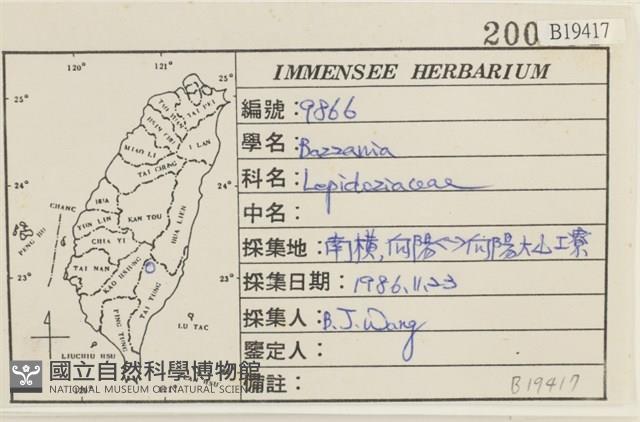 200 B19417
IMMENSEE HERBARIUM
編號：9866
學名：Bazzania
科名：Lepidoziaceae
中名：
採集地：南橫，向陽<->向陽大山工寮
採集日期：1986.11.23
採集人：B.J.Wang
鑒定人：
備註：
B19417
120° 121°
25° 25°
TAI PEI
TAO YUAN
HSIN CHU
I LAN
MIAO LI
TAI CHUNG
24° 24°
CHANG HUA
NAN TOU
HUA LIEN
YUN LIN
PENG HU
CHIA YI
TAI NAN
KAO HSIUNG
23° 23°
TAI TUNG
PING TUNG
LU TAO
LIUCHIU HSU
國立自然科學博物館
NATIONAL MUSEUM OF NATURAL SCIENCE